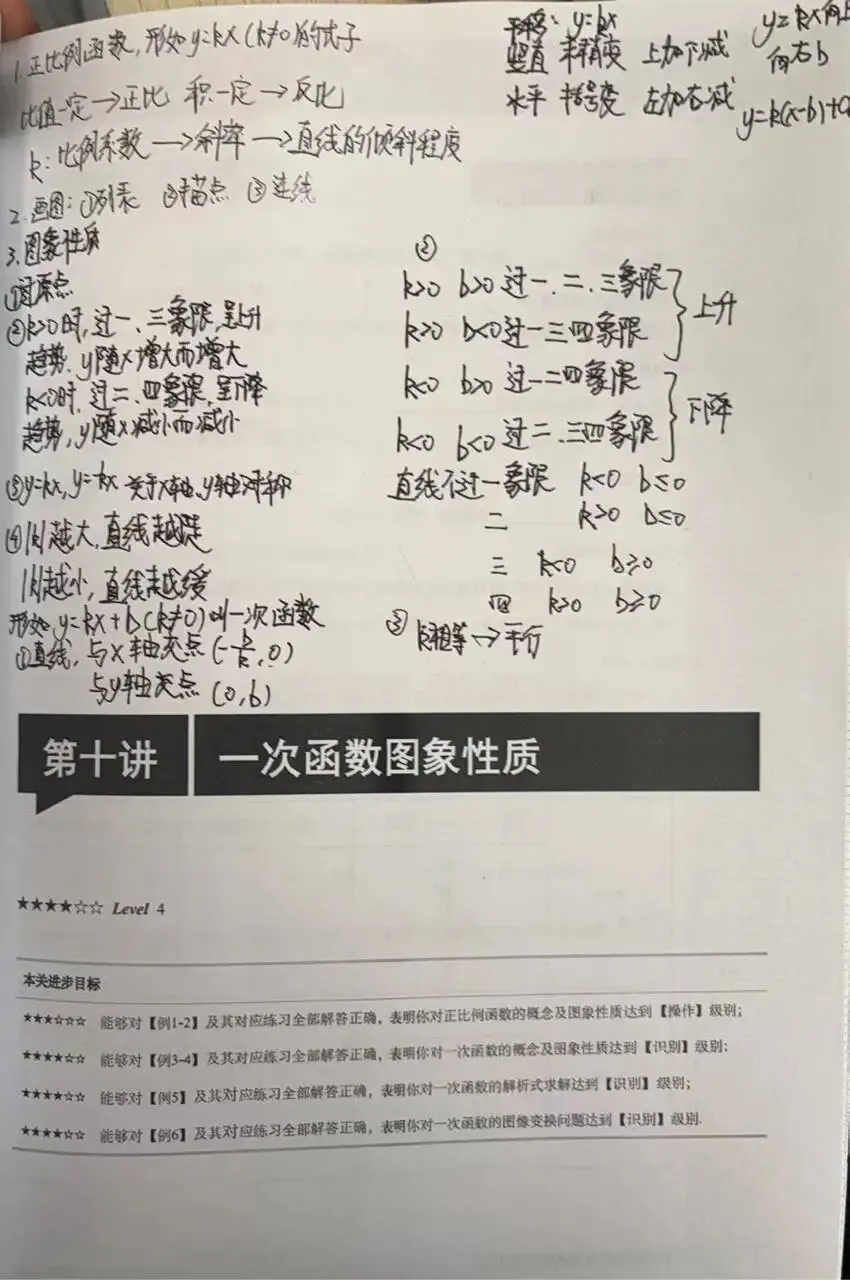 1.正比例函数,形如y=kx(k≠0)的式子
比值一定→正比 积一定→反比
k:比例系数→斜率→直线的倾斜程度
2.画图:①列表 ②描点 ③连线
3.图象性质
①过原点
②k>0时,过一、三象限,呈上升
趋势.y随x增大而增大
k<0时,过二、四象限,呈下降
趋势,y随x减小而减小
③y=kx,y=-kx 关于x轴、y轴对称
④|k|越大,直线越陡
|k|越小,直线越缓
形如y=kx+b(k≠0)叫一次函数
①直线,与x轴交点(-b/k,0)
与y轴交点(0,b)
平移:y=kx
竖直 末稍变 上加下减
水平 括号变 左加右减
y=kx向上
向右b
y=k(x-b)+
②
k>0 b>0过一、二、三象限
k>0 b<0过一三四象限
}上升
k<0 b>0 过一二四象限
k<0 b<0过二、三四象限
}下降
直线不过一象限 k<0 b≤0
二 k>0 b≤0
三 k<0 b≥0
四 k>0 b≥0
③k相等→平行
第十讲 一次函数图象性质
★★★★☆☆ Level 4
本关进步目标
★★★☆☆☆ 能够对【例1-2】及其对应练习全部解答正确,表明你对正比例函数的概念及图象性质达到【操作】级别;
★★★★☆☆ 能够对【例3-4】及其对应练习全部解答正确,表明你对一次函数的概念及图象性质达到【识别】级别;
★★★★☆☆ 能够对【例5】及其对应练习全部解答正确,表明你对一次函数的解析式求解达到【识别】级别;
★★★★☆☆ 能够对【例6】及其对应练习全部解答正确,表明你对一次函数的图像变换问题达到【识别】级别.